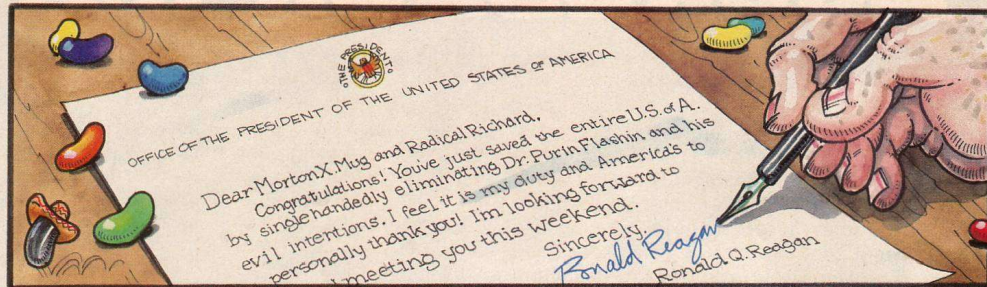 THE PRESIDENT
OFFICE OF THE PRESIDENT OF THE UNITED STATES OF AMERICA
Dear Morton X. Mug and Radical Richard,
Congratulations! Youve just saved the entire U.S. of A.
by singlehandedly eliminating Dr. Purin Flashin and his
evil intentions. I feel it is my duty and America's to
personally thank you! I'm looking forward to
meeting you this weekend.
Sincerely,
Ronald Reagan
Ronald Q. Reagan